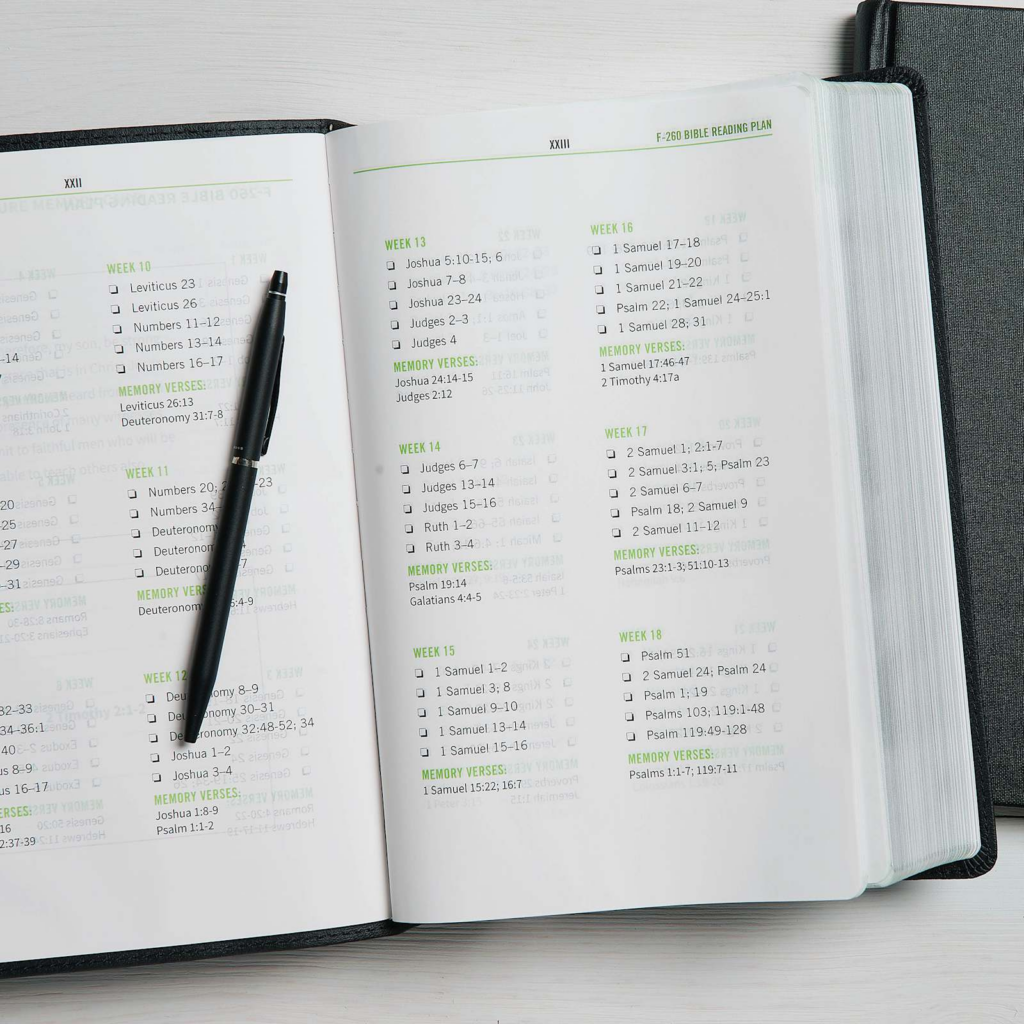 XXII
-14
20
-25
-27
-29
-31
32-33
34-36:1
40
us 8-9
us 16-17
16
2:37-39
WEEK 10
Leviticus 23
Leviticus 26
Numbers 11-12
Numbers 13-14
Numbers 16-17
MEMORY VERSES:
Leviticus 26:13
Deuteronomy 31:7-8
WEEK 11
Numbers 20; -23
Numbers 34-
Deuteronomy
Deuteronomy
Deuterono
MEMORY VERS
Deuteronomy 6:4-9
WEEK 12
Deu onomy 8-9
onomy 30-31
D onomy 32:48-52; 34
Joshua 1-2
Joshua 3-4
MEMORY VERSES:
Joshua 1:8-9
Psalm 1:1-2
XXIII
F-260 BIBLE READING PLAN
WEEK 13
Joshua 5:10-15; 6
Joshua 7-8
Joshua 23-24
Judges 2-3
Judges 4
MEMORY VERSES:
Joshua 24:14-15
Judges 2:12
WEEK 14
Judges 6-7
Judges 13-14
Judges 15-16
Ruth 1-2
Ruth 3-4
MEMORY VERSES:
Psalm 19:14
Galatians 4:4-5
WEEK 15
1 Samuel 1-2
1 Samuel 3; 8
1 Samuel 9-10
1 Samuel 13-14
1 Samuel 15-16
MEMORY VERSES:
1 Samuel 15:22; 16:7
WEEK 16
1 Samuel 17-18
1 Samuel 19-20
1 Samuel 21-22
Psalm 22; 1 Samuel 24-25:1
1 Samuel 28; 31
MEMORY VERSES:
1 Samuel 17:46-47
2 Timothy 4:17a
WEEK 17
2 Samuel 1; 2:1-7
2 Samuel 3:1; 5; Psalm 23
2 Samuel 6-7
Psalm 18; 2 Samuel 9
2 Samuel 11-12
MEMORY VERSES:
Psalms 23:1-3; 51:10-13
WEEK 18
Psalm 51
2 Samuel 24; Psalm 24
Psalm 1; 19
Psalms 103; 119:1-48
Psalm 119:49-128
MEMORY VERSES:
Psalms 1:1-7; 119:7-11